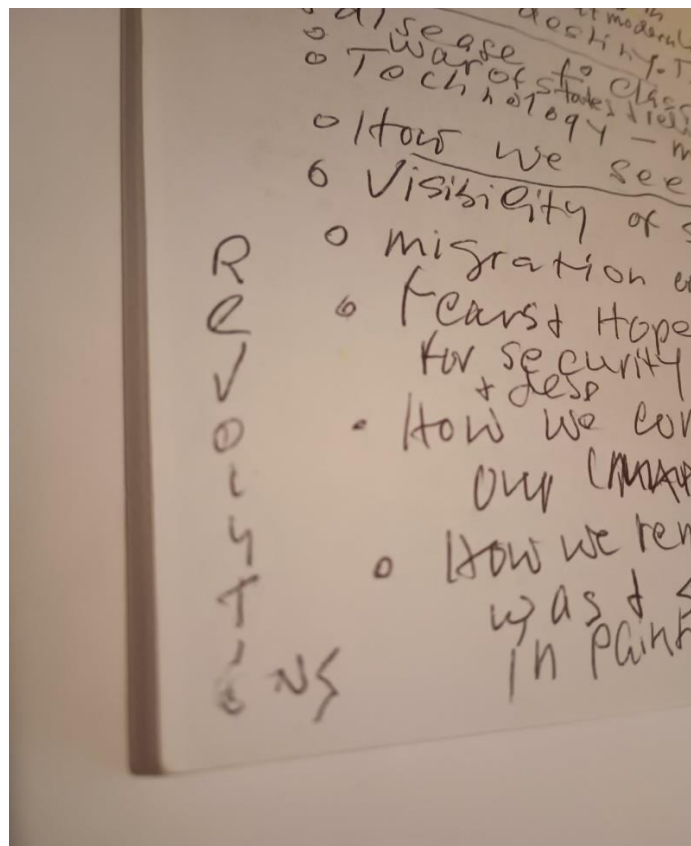 in
modern
destiny. T
Disease to class
War of states
Technology - m
How we see
Visibility of s
migration
Fears + Hope
For security
+ desp
How we con
our
How we rem
was + s
in paint
REVOLUTIONS